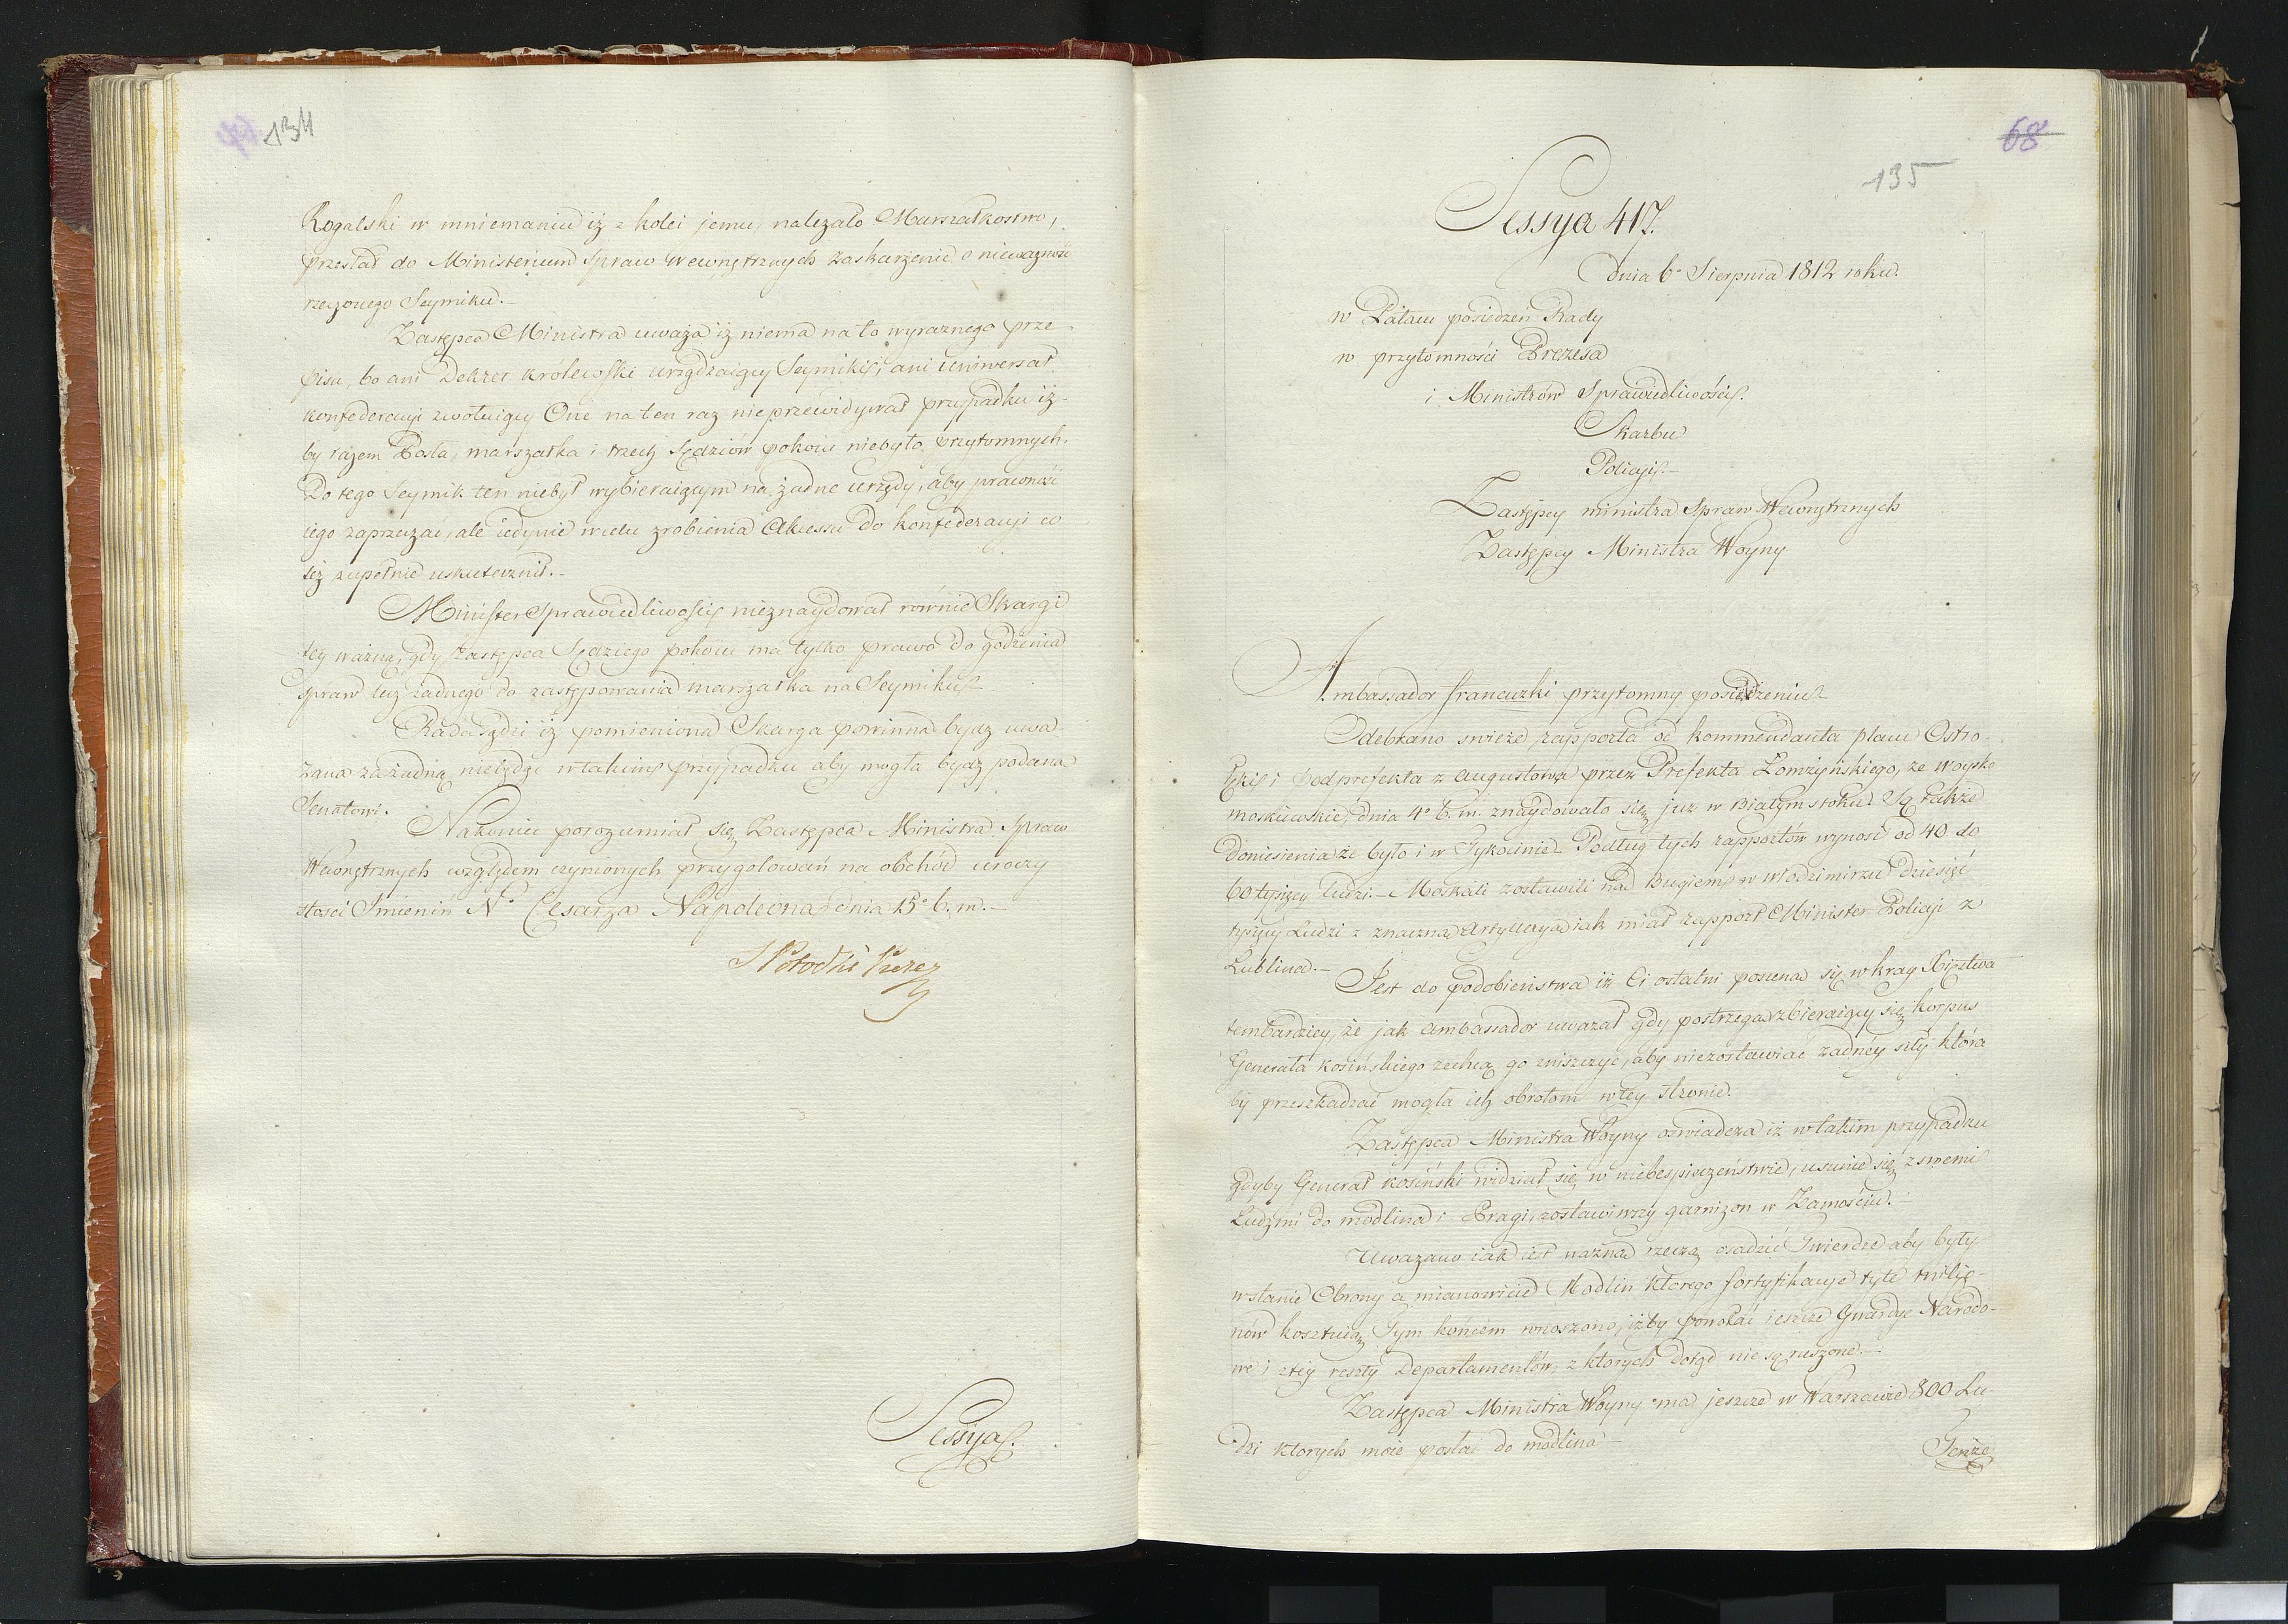 134
Rogalski w mniemaniu iż z kolei jemu, należało Marszałkostwo,
przesłał do Ministerium Spraw Wewnętrznych zaskarżenie o nieważność
rzeczonego Seymiku.
Zastępca Ministra uważa iż niema na to wyraznego prze-
pisu, bo ani Dekret królewski urządzaiący Seymiki, ani uniwersał
konfederacyi zwołuiący One na ten raz nieprzewidywał przypadku iż-
by razem Posła, marszałka i trzech Sędziów pokoiu niebyło przytomnych.
Do tego Seymik ten niebył wybieraiącym na żadne urzędy, aby prawność
iego zaprzeczać, ale iedynie w celu zrobienia Akcessu do konfederacyi co
też zupełnie uskutecznił.
Minister Sprawiedliwości nieznaydował równie Skargi
tey ważną, gdyż zastępca Sędziego pokoiu ma tylko prawo do godzenia
spraw lecz żadnego do zastępowania marszałka na Seymiku
Rada sądzi iż pomieniona Skarga powinna bydz uwa-
żana za żadną niebędąc w takim przypadku aby mogła bydz podana
Senatowi.
Nakoniec porozumiał się Zastępca Ministra Spraw
Wewnętrznych względem czynionych przygotowań na obchód uroczy
stości Imienin N° Cesarza Napoleona dnia 15° b. m.
S Potocki Prezes
Sessya
68
135
Sessya 417.
dnia 6° Sierpnia 1812 roku.
w Pałacu posiedzeń Rady
w przytomności Prezesa
i Ministrów Sprawiedliwości.
Skarbu
Policyi
Zastępcy ministra Spraw Wewnętrznych
Zastępcy Ministra Woyny.
Ambassador francuzki przytomny posiedzeniu
Odebrano swieże rapporta od kommendanta placu Ostro-
łęki i Podprefekta z Augustowa przez Prefekta Łomżyńskiego, że woysko
moskiewskie, dnia 4° b. m. znaydowało się już w Białymstoku. Są także
doniesienia że było i w Tykocinie. Podług tych rapportów wynosi od 40. do
60 tysięcy ludzi. Moskali zostawili nad Bugiem w Włodzimirzu dziesięć
tysięcy Ludzi z znaczną Artylleryą iak miał rapport Minister Policyi z
Lublina.
Jest do podobieństwa iż Ci ostatni posuną się w kray Xięstwa
tembardziey, że jak Ambassador uważał gdy postrzegą zbieraiący się korpus
Generała Kosińskiego zechcą go zniszczyć, aby niezostawiać żadnéy siły która
by przeszkadzać mogła ich obrotom w tey stronie.
Zastępca Ministra Woyny oswiadcza iż w takim przypadku
gdyby Generał Kosiński widział się w niebespieczeństwie, usunie się z swemi
Ludzmi do modlina i Pragi, zostawiwszy garnizon w Zamościu.
Uważano iak iest ważną rzeczą osadzić Twierdze aby były
w stanie Obrony a mianowicie Modlin którego fortyfikacye tyle millio-
nów kosztuią. Tym końcem wnoszono, iżby powołać ieszcze Gwardye Narodo-
we i z tey reszty Departamentów, z ktorych dotąd nie są ruszone.
Zastępca Ministra Woyny ma jeszcze w Warszawie 800 Lu-
dzi ktorych może posłać do modlina
Tenże